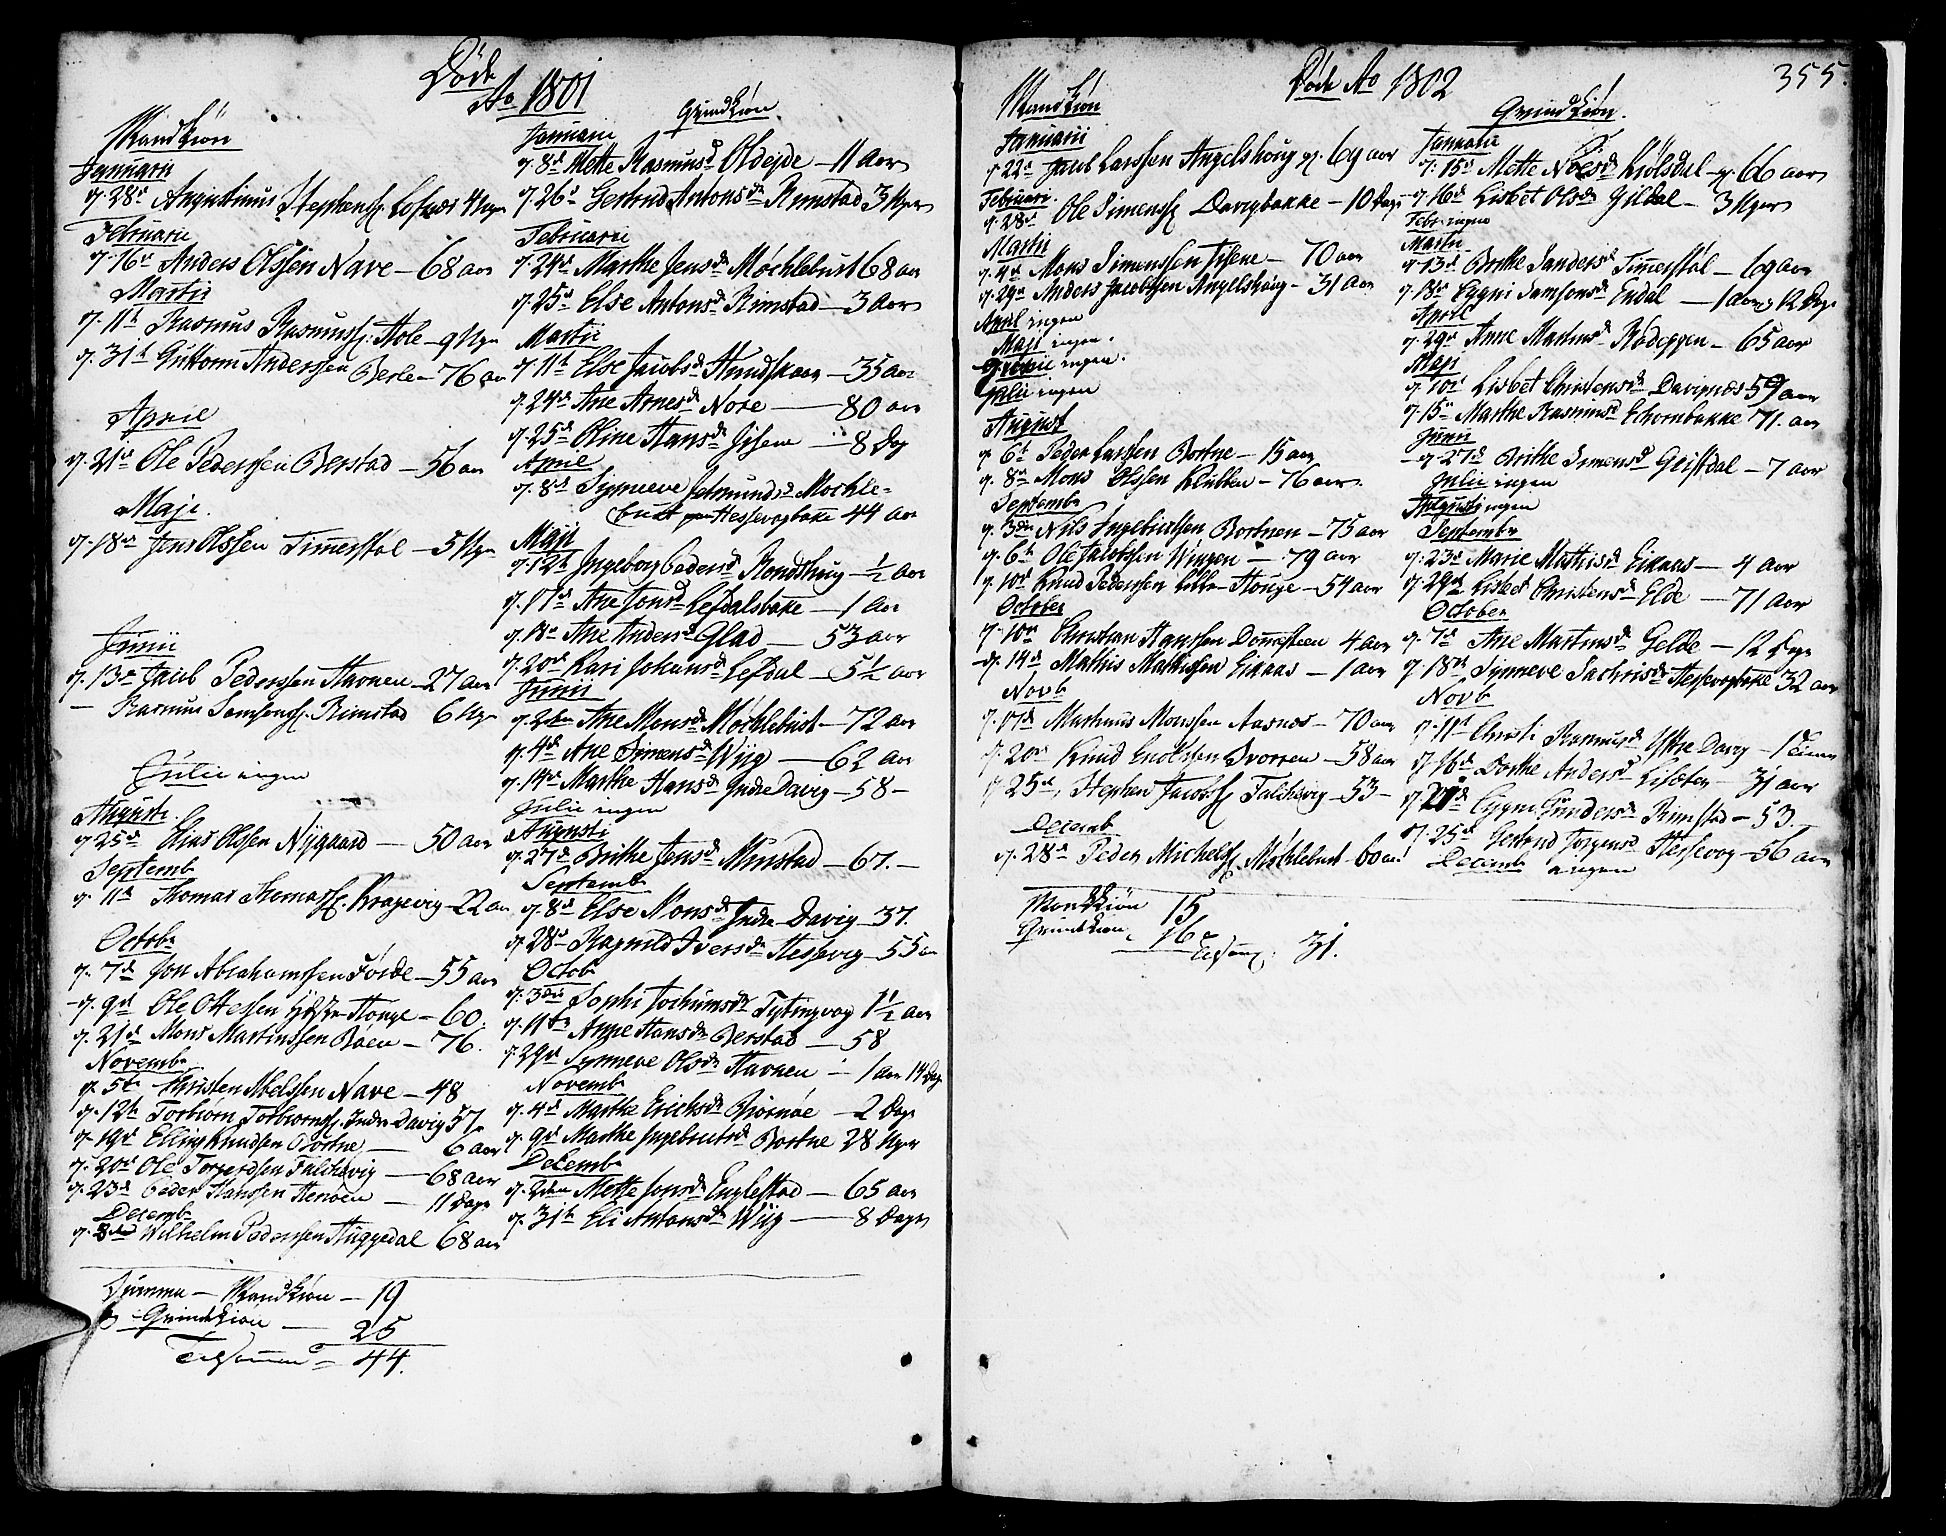 Døde
Ao 1801
Mandkiøn
Januarii
d. 28de Augustinus Stephens. Lofnæs 4 Uger
Februarii
d. 16de Anders Olssen Nave – 68 aar
Martii
d. 11te Rasmus Rasmuss. Hole – 9 Uger
d. 31te Guttorm Anderssen Berle – 76 aar
April
d. 21de Ole Pederssen Berstad – 56 aar
Maji
d. 18de Jens Olssen Timerstøl – 5 Uger
Junii
d. 13de Jacob Pederssen Havnen – 27 aar
– Rasmus Samsons. Rimstad 6 Uger
Julii ingen
Augusti
d. 25de Elias Olssen Nygaard – 50 aar
Septemb
d. 11te Thomas Thomass. Krogevig – 22 aar
Octobr
d. 7de Jon Abrahamssen Førde – 55 aar
d. 9de Ole Ottesen Houge – 60.
d. 21de Mons Martinssen Røen – 76.
Novembr
d. 5te Christen Abelssen Nave – 48
d. 12te Torbiørn Torbiørns. Indre Davig 57
d. 19de Elling Knudsen Bortne – 6 aar
d. 20de Ole Torgersen Falchevig – 68 aar
d. 23de Peder Hanssen Henøen – 11 Dage
Decemb
d. 8de Wilhelm Pederssen Huggedal 68 aar
Summa – Mandkiøn – 19
Qvindekiøn – 25
Tilsamen = 44.
Qvindkiøn.
Januarii
d. 8de Mette Rasmusd. Oldeide – 11 Aar
d. 26de Gertrud Antonsdr Rimstad 3 Uger
Februarii
d. 24de Marthe Jensdr Møchlebust 68 aar
d. 25de Else Antonsdr Rimstad – 3 Aar
Martii
d. 11te Else Jacobsdr Hundskaar – 35 aar
d. 24de Ane Arnesdr Nore – 80 aar
d. 25de Oline Hansdr – 8 Dag
April
d. 8de Synneve Jetmundsdr Møchle=
bust Hessevogbakke 44 aar
Maji
d. 12te Ingeborg Pedersdr Rondehug – ½ aar
d. 17de Ane Jonsdr Lefdalsbakke – 1 Aar
d. 18de Ane Andersdr Glad – 53 aar
d. 20de Kari Johansdr Lefdal – 5½ aar
Junii
d. 2den Ane Monsdr Møchlebust – 72 aar
d. 4de Ane Simensdr Wiig – 62 aar
d. 14de Marthe Hansdr Indre Davig – 58 –
Julii ingen
Augusti
d. 27de Brithe Jensdr Rimstad – 67. –
Septembr
d. 8de Else Monsdr Indre Davig – 37.
d. 28de Ragnild Iversdr Hessevig – 55 aar
Octobr
d. 3die Sophi Jochumsdr Tytingvog 1½ aar
d. 11te Anne Hansdr Berstad – 58
d. 29de Synneve Olsdr Havnen – 1 aar 14 Dage
Novembr
d. 4de Marthe Erichsdr Biørnøe – 2 Dage
d. 9de Marthe Ingebretsdr Bortne 28 Uger
Decembr
d. 2den Mette Jonsdr Englestad – 65 aar
d. 31te Eli Antonsdr Wiig – 8 Dage
355.
Døde Ao 1802
Mandkiøn
Januarii
d 22de Jacob Larssen Angelshoug g. 69 aar
Februari.
d. 28de Ole Simenss. Davigbakke – 10 Dage
Martii
d. 4de Mons Simenssen – 70 aar
d. 29de Anders Jacobssen Angelshoug – 31 Aar
April ingen
Maji ingen.
Junii ingen.
Julii ingen
August
d. 6te Peder Larssen Bortne – 15 aar
d. 8de Mons Olssen Klubben – 76 aar.
Septembr
d. 3die Nils Ingebrictsen Bortnen – 75 aar
d. 6te Ole Jacobsen Wingen – 79 aar
d. 10de Knud Pederssen Lille Houge – 54 aar
October
d. 10de Christian Hanssen Domesteen 4 aar
d. 14de Mathis Mathissen Eikaas – 1 aar
Novb
d. 17de Markus Monssen Aasnæs – 70 aar
d. 20de Knud – 58 aar
d. 25de Stephen Jacobs. Falchevig – 53 –
Decemb
d. 28de Peder Michels. Møchlebust – 60 aar
Mandkiøn 15
Qvindekiøn 16
Tilsam. 31.
Qvindkiøn.
Januarii
d. 15de Mette Nilsdr Kiølsdal – g. 66 aar
d. 16de Lisbet Olsdr Gildal – 3 Uger
Febr. ingen
Martii
d. 13de Brithe Sandersdr Timerstøl – 69 aar
d. 18de Eygni Samsonsdr Endal – 1 aar, 12 Dage
April
d. 29de Anne Rasmusdr Rødeggen – 65 aar
Maji
d. 10de Lisbet Christensdr Davignæs 59 aar
d. 15de Marthe Rasmusdr Ethornbakke 71. aar
Junii
d. 27de Brithe Simensdr Geistdal – 7 aar
Julii ingen
Augusti ingen
Septembr
d. 23de Marie Mathisdr Eikaas – 4 aar
d. 29de Lisbet Christensdr Elde – 71 Aar
October
d. 7de Ane Martinsdr Gelde – 12 Dage
d. 18de Synneve Sachrisdr Hessevogbakke 32 aar
Novb
d. 11te Christi Rasmusdr Ystre Davig – 1 Time
d. 16de Dorthe Andersdr Lisæter – 31 aar
d. 21de Eygni Gundersdr Rimstad – 53. –
d. 25de Gertrud Jørgensdr Hessevog – 56 aar
Decemb ingen